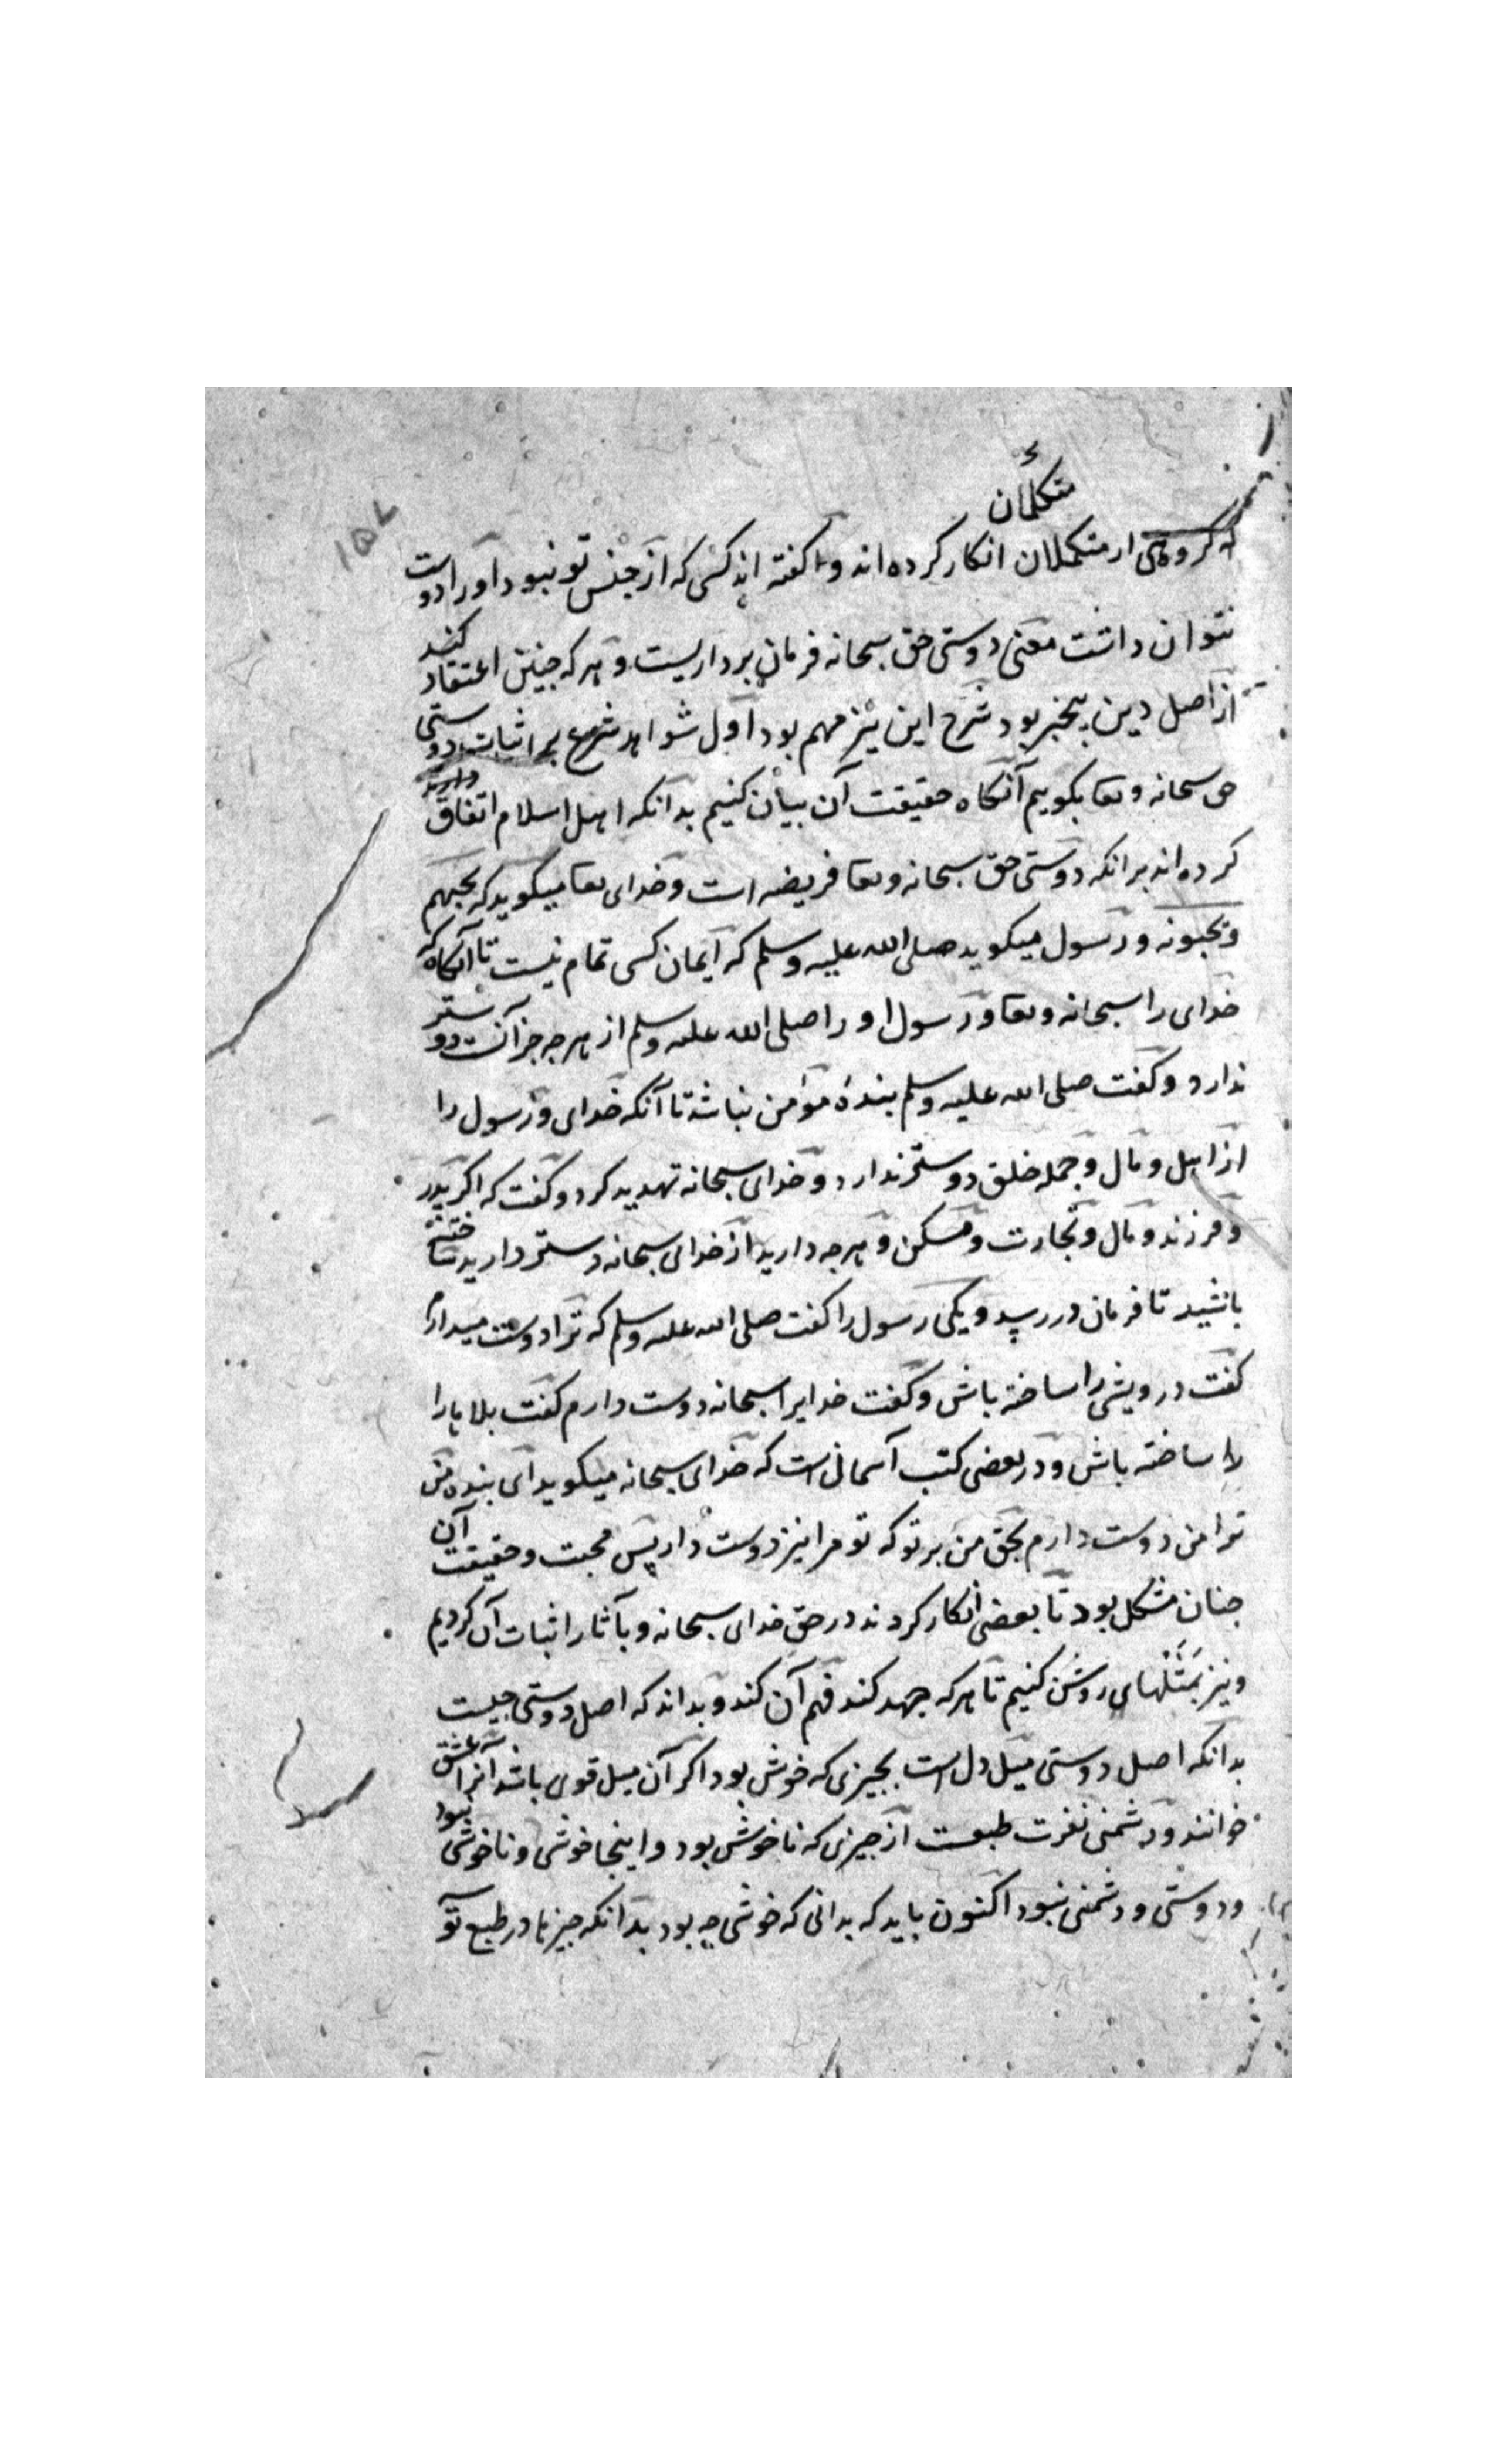 متکلمان
که گروهی از متکملان انکار کرده اند و گفته اند کسی که از جنس تو نبود او را دوست
نتوان داشت معنی دوستی حق سبحانه فرمان برداریست و هر که چنین اعتقاد کند
از اصل دین بیخبر بود شرح این نیز مهم بود اول شواهد شرع بر اثبات دوستی
حق سبحانه وتعا بگوییم آنگاه حقیقت آن بیان کنیم بدانکه اهل اسلام اتفاق دارند
کرده اند برانکه دوستی حق سبحانه وتعا فریضه است و خدای تعا میگوید که یحبهم
ویحبونه و رسول میگوید صلی الله علیه وسلم که ایمان کسی تمام نیست تا آنگاه که
خدای را سبحانه وتعا و رسول او را صلی الله علیه وسلم از هر چه جز آنست دوستر
ندارد و گفت صلی الله علیه وسلم بندهٔ مؤمن نباشد تا آنکه خدای و رسول را
از اهل و مال و جمله خلق دوستر ندارد و خدای سبحانه تهدید کرد و گفت که اگر پدر
و فرزند و مال و تجارت و مسکن و هر چه دارید از خدای سبحانه دوستر دارید ساخته
باشید تا فرمان در رسد و یکی رسول را گفت صلی الله علیه وسلم که ترا دوست میدارم
گفت درویشی را ساخته باش و گفت خدایرا سبحانه دوست دارم گفت بلاها را
را ساخته باش و در بعضی کتب آسمانی است که خدای سبحانه میگوید ای بنده من
ترا من دوست دارم بحق من بر تو که تو مرا نیز دوست دار پس محبت و حقیقت آن
چنان مشکل بود تا بعضی انکار کردند در حق خدای سبحانه و بآثار اثبات آن کردیم
و نیز بمثلهای روشن کنیم تا هر که جهد کند فهم آن کند و بداند که اصل دوستی چیست
بدانکه اصل دوستی میل دل است بچیزی که خوش بود اگر آن میل قوی باشد آنرا عشق
خوانند و دشمنی نفرت طبعست از چیزی که ناخوش بود و اینجا خوشی و ناخوشی نبود
و دوستی و دشمنی نبود اکنون باید که بدانی که خوشی چه بود بدانکه چیزها در طبع تو